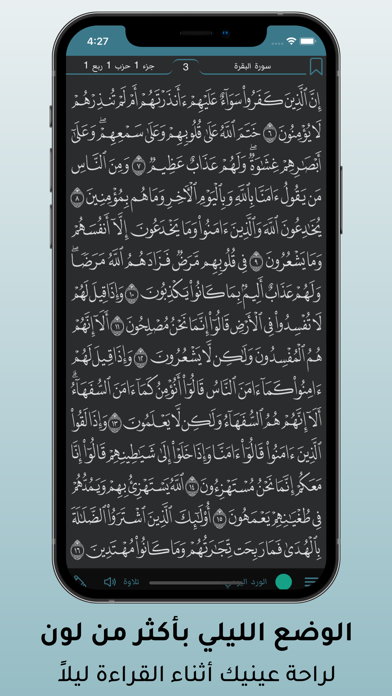 4:27
سورة البقرة 3 جزء 1 حزب 1 ربع 1
إِنَّ ٱلَّذِينَ كَفَرُوا۟ سَوَآءٌ عَلَيْهِمْ ءَأَنذَرْتَهُمْ أَمْ لَمْ تُنذِرْهُمْ
لَا يُؤْمِنُونَ ٦ خَتَمَ ٱللَّهُ عَلَىٰ قُلُوبِهِمْ وَعَلَىٰ سَمْعِهِمْ ۖ وَعَلَىٰٓ
أَبْصَٰرِهِمْ غِشَٰوَةٌ ۖ وَلَهُمْ عَذَابٌ عَظِيمٌ ٧ وَمِنَ ٱلنَّاسِ
مَن يَقُولُ ءَامَنَّا بِٱللَّهِ وَبِٱلْيَوْمِ ٱلْءَاخِرِ وَمَا هُم بِمُؤْمِنِينَ ٨
يُخَٰدِعُونَ ٱللَّهَ وَٱلَّذِينَ ءَامَنُوا۟ وَمَا يَخْدَعُونَ إِلَّآ أَنفُسَهُمْ
وَمَا يَشْعُرُونَ ٩ فِى قُلُوبِهِم مَّرَضٌ فَزَادَهُمُ ٱللَّهُ مَرَضًا ۖ
وَلَهُمْ عَذَابٌ أَلِيمٌۢ بِمَا كَانُوا۟ يَكْذِبُونَ ١٠ وَإِذَا قِيلَ لَهُمْ
لَا تُفْسِدُوا۟ فِى ٱلْأَرْضِ قَالُوٓا۟ إِنَّمَا نَحْنُ مُصْلِحُونَ ١١ أَلَآ إِنَّهُمْ
هُمُ ٱلْمُفْسِدُونَ وَلَٰكِن لَّا يَشْعُرُونَ ١٢ وَإِذَا قِيلَ لَهُمْ
ءَامِنُوا۟ كَمَآ ءَامَنَ ٱلنَّاسُ قَالُوٓا۟ أَنُؤْمِنُ كَمَآ ءَامَنَ ٱلسُّفَهَآءُ ۗ
أَلَآ إِنَّهُمْ هُمُ ٱلسُّفَهَآءُ وَلَٰكِن لَّا يَعْلَمُونَ ١٣ وَإِذَا لَقُوا۟
ٱلَّذِينَ ءَامَنُوا۟ قَالُوٓا۟ ءَامَنَّا وَإِذَا خَلَوْا۟ إِلَىٰ شَيَٰطِينِهِمْ قَالُوٓا۟ إِنَّا
مَعَكُمْ إِنَّمَا نَحْنُ مُسْتَهْزِءُونَ ١٤ ٱللَّهُ يَسْتَهْزِئُ بِهِمْ وَيَمُدُّهُمْ
فِى طُغْيَٰنِهِمْ يَعْمَهُونَ ١٥ أُو۟لَٰٓئِكَ ٱلَّذِينَ ٱشْتَرَوُا۟ ٱلضَّلَٰلَةَ
بِٱلْهُدَىٰ فَمَا رَبِحَت تِّجَٰرَتُهُمْ وَمَا كَانُوا۟ مُهْتَدِينَ ١٦
الورد تلاوة
الوضع الليلي بأكثر من لون
لراحة عينيك أثناء القراءة ليلاً